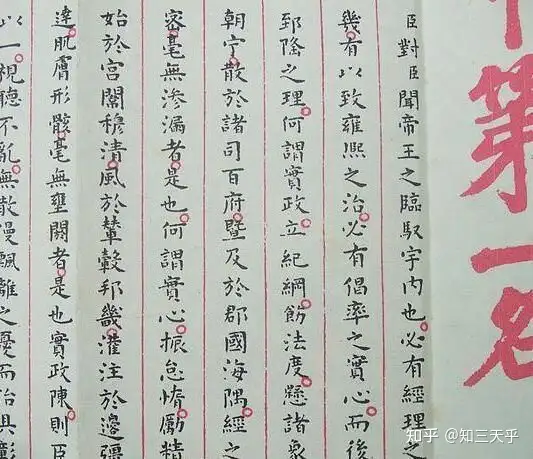 第一名
臣對臣聞帝王之臨馭宇内也必有經理之
幾有以致雍熙之治必有倡率之實心而後
郅隆之理何謂實政立紀綱飭法度懸諸象
朝宁散於諸司百府暨及於郡國海隅經之
密毫無滲漏者是也何謂實心振怠惰勵精
始於宮闈穆清風於輦轂邦畿灌注於邊疆
達肌膚形骸毫無壅閼者是也實政陳則臣
以一視聽不亂無散漫飄離之憂而治具彰
知乎 @知三天乎